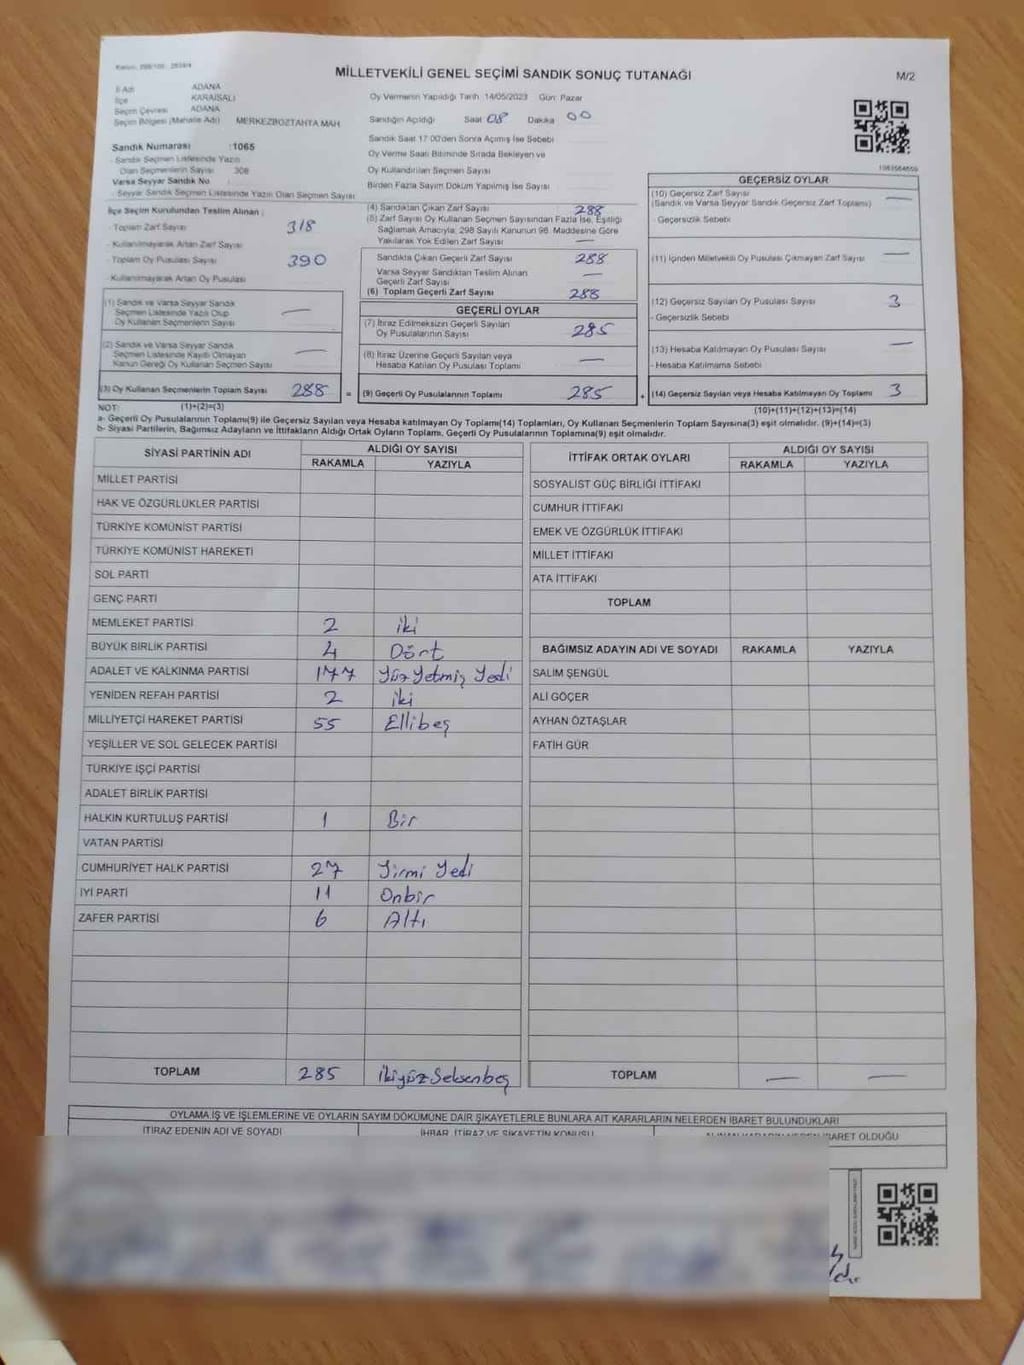 MİLLETVEKİLİ GENEL SEÇİMİ SANDIK SONUÇ TUTANAĞI
M/2
İl Adı ADANA
İlçe KARAİSALI
Seçim Çevresi ADANA
Seçim Bölgesi (Mahalle Adı) MERKEZBOZTAHTA MAH.
Sandık Numarası :1065
- Sandık Seçmen Listesinde Yazılı
Olan Seçmenlerin Sayısı 308
Varsa Seyyar Sandık No
- Seyyar Sandık Seçmen Listesinde Yazılı Olan Seçmen Sayısı
Oy Vermenin Yapıldığı Tarih :14/05/2023 Gün: Pazar
Sandığın Açıldığı Saat 08 Dakika 00
Sandık Saat 17:00'den Sonra Açılmış İse Sebebi
Oy Verme Saati Bitiminde Sırada Bekleyen ve
Oy Kullandırılan Seçmen Sayısı
Birden Fazla Sayım Döküm Yapılmış İse Sayısı
İlçe Seçim Kurulundan Teslim Alınan :
- Toplam Zarf Sayısı 318
- Kullanılmayarak Artan Zarf Sayısı
- Toplam Oy Pusulası Sayısı 390
- Kullanılmayarak Artan Oy Pusulası
(1) Sandık ve Varsa Seyyar Sandık
Seçmen Listesinde Yazılı Olup
Oy Kullanan Seçmenlerin Sayısı —
(2) Sandık ve Varsa Seyyar Sandık
Seçmen Listesinde Kayıtlı Olmayan
Kanun Gereği Oy Kullanan Seçmen Sayısı —
(3) Oy Kullanan Seçmenlerin Toplam Sayısı 288 =
(1)+(2)=(3)
(4) Sandıktan Çıkan Zarf Sayısı 288
(5) Zarf Sayısı Oy Kullanan Seçmen Sayısından Fazla İse, Eşitliği
Sağlamak Amacıyla, 298 Sayılı Kanunun 98. Maddesine Göre
Yakılarak Yok Edilen Zarf Sayısı —
Sandıkta Çıkan Geçerli Zarf Sayısı 288
Varsa Seyyar Sandıktan Teslim Alınan
Geçerli Zarf Sayısı —
(6) Toplam Geçerli Zarf Sayısı 288
GEÇERLİ OYLAR
(7) İtiraz Edilmeksizin Geçerli Sayılan
Oy Pusulalarının Sayısı 285
(8) İtiraz Üzerine Geçerli Sayılan veya
Hesaba Katılan Oy Pusulası Toplamı —
(9) Geçerli Oy Pusulalarının Toplamı 285 +
GEÇERSİZ OYLAR
(10) Geçersiz Zarf Sayısı —
(Sandık ve Varsa Seyyar Sandık Geçersiz Zarf Toplamı)
- Geçersizlik Sebebi
(11) İçinden Milletvekili Oy Pusulası Çıkmayan Zarf Sayısı —
(12) Geçersiz Sayılan Oy Pusulası Sayısı 3
- Geçersizlik Sebebi
(13) Hesaba Katılmayan Oy Pusulası Sayısı —
- Hesaba Katılmama Sebebi
(14) Geçersiz Sayılan veya Hesaba Katılmayan Oy Toplamı 3
(10)+(11)+(12)+(13)=(14)
NOT:
a- Geçerli Oy Pusulalarının Toplamı(9) ile Geçersiz Sayılan veya Hesaba katılmayan Oy Toplamı(14) Toplamları, Oy Kullanan Seçmenlerin Toplam Sayısına(3) eşit olmalıdır. (9)+(14)=(3)
b- Siyasi Partilerin, Bağımsız Adayların ve İttifakların Aldığı Oyların Toplamı, Geçerli Oy Pusulalarının Toplamına(9) eşit olmalıdır.
SİYASİ PARTİNİN ADI ALDIĞI OY SAYISI
RAKAMLA YAZIYLA
MİLLET PARTİSİ
HAK VE ÖZGÜRLÜKLER PARTİSİ
TÜRKİYE KOMÜNİST PARTİSİ
TÜRKİYE KOMÜNİST HAREKETİ
SOL PARTİ
GENÇ PARTİ
MEMLEKET PARTİSİ 2 iki
BÜYÜK BİRLİK PARTİSİ 4 Dört
ADALET VE KALKINMA PARTİSİ 177 Yüz Yetmiş Yedi
YENİDEN REFAH PARTİSİ 2 iki
MİLLİYETÇİ HAREKET PARTİSİ 55 Ellibeş
YEŞİLLER VE SOL GELECEK PARTİSİ
TÜRKİYE İŞÇİ PARTİSİ
ADALET BİRLİK PARTİSİ
HALKIN KURTULUŞ PARTİSİ 1 Bir
VATAN PARTİSİ
CUMHURİYET HALK PARTİSİ 27 Yirmi Yedi
İYİ PARTİ 11 Onbir
ZAFER PARTİSİ 6 Altı
TOPLAM 285 ikiyüzSeksenbeş
İTTİFAK ORTAK OYLARI ALDIĞI OY SAYISI
RAKAMLA YAZIYLA
SOSYALİST GÜÇ BİRLİĞİ İTTİFAKI
CUMHUR İTTİFAKI
EMEK VE ÖZGÜRLÜK İTTİFAKI
MİLLET İTTİFAKI
ATA İTTİFAKI
TOPLAM
BAĞIMSIZ ADAYIN ADI VE SOYADI RAKAMLA YAZIYLA
SALİM ŞENGÜL
ALİ GÖÇER
AYHAN ÖZTAŞLAR
FATİH GÜR
TOPLAM — —
OYLAMA İŞ VE İŞLEMLERİNE VE OYLARIN SAYIM DÖKÜMÜNE DAİR ŞİKAYETLERLE BUNLARA AİT KARARLARIN NELERDEN İBARET BULUNDUKLARI
İTİRAZ EDENİN ADI VE SOYADI İHBAR, İTİRAZ VE ŞİKAYETİN KONUSU İBARET OLDUĞU